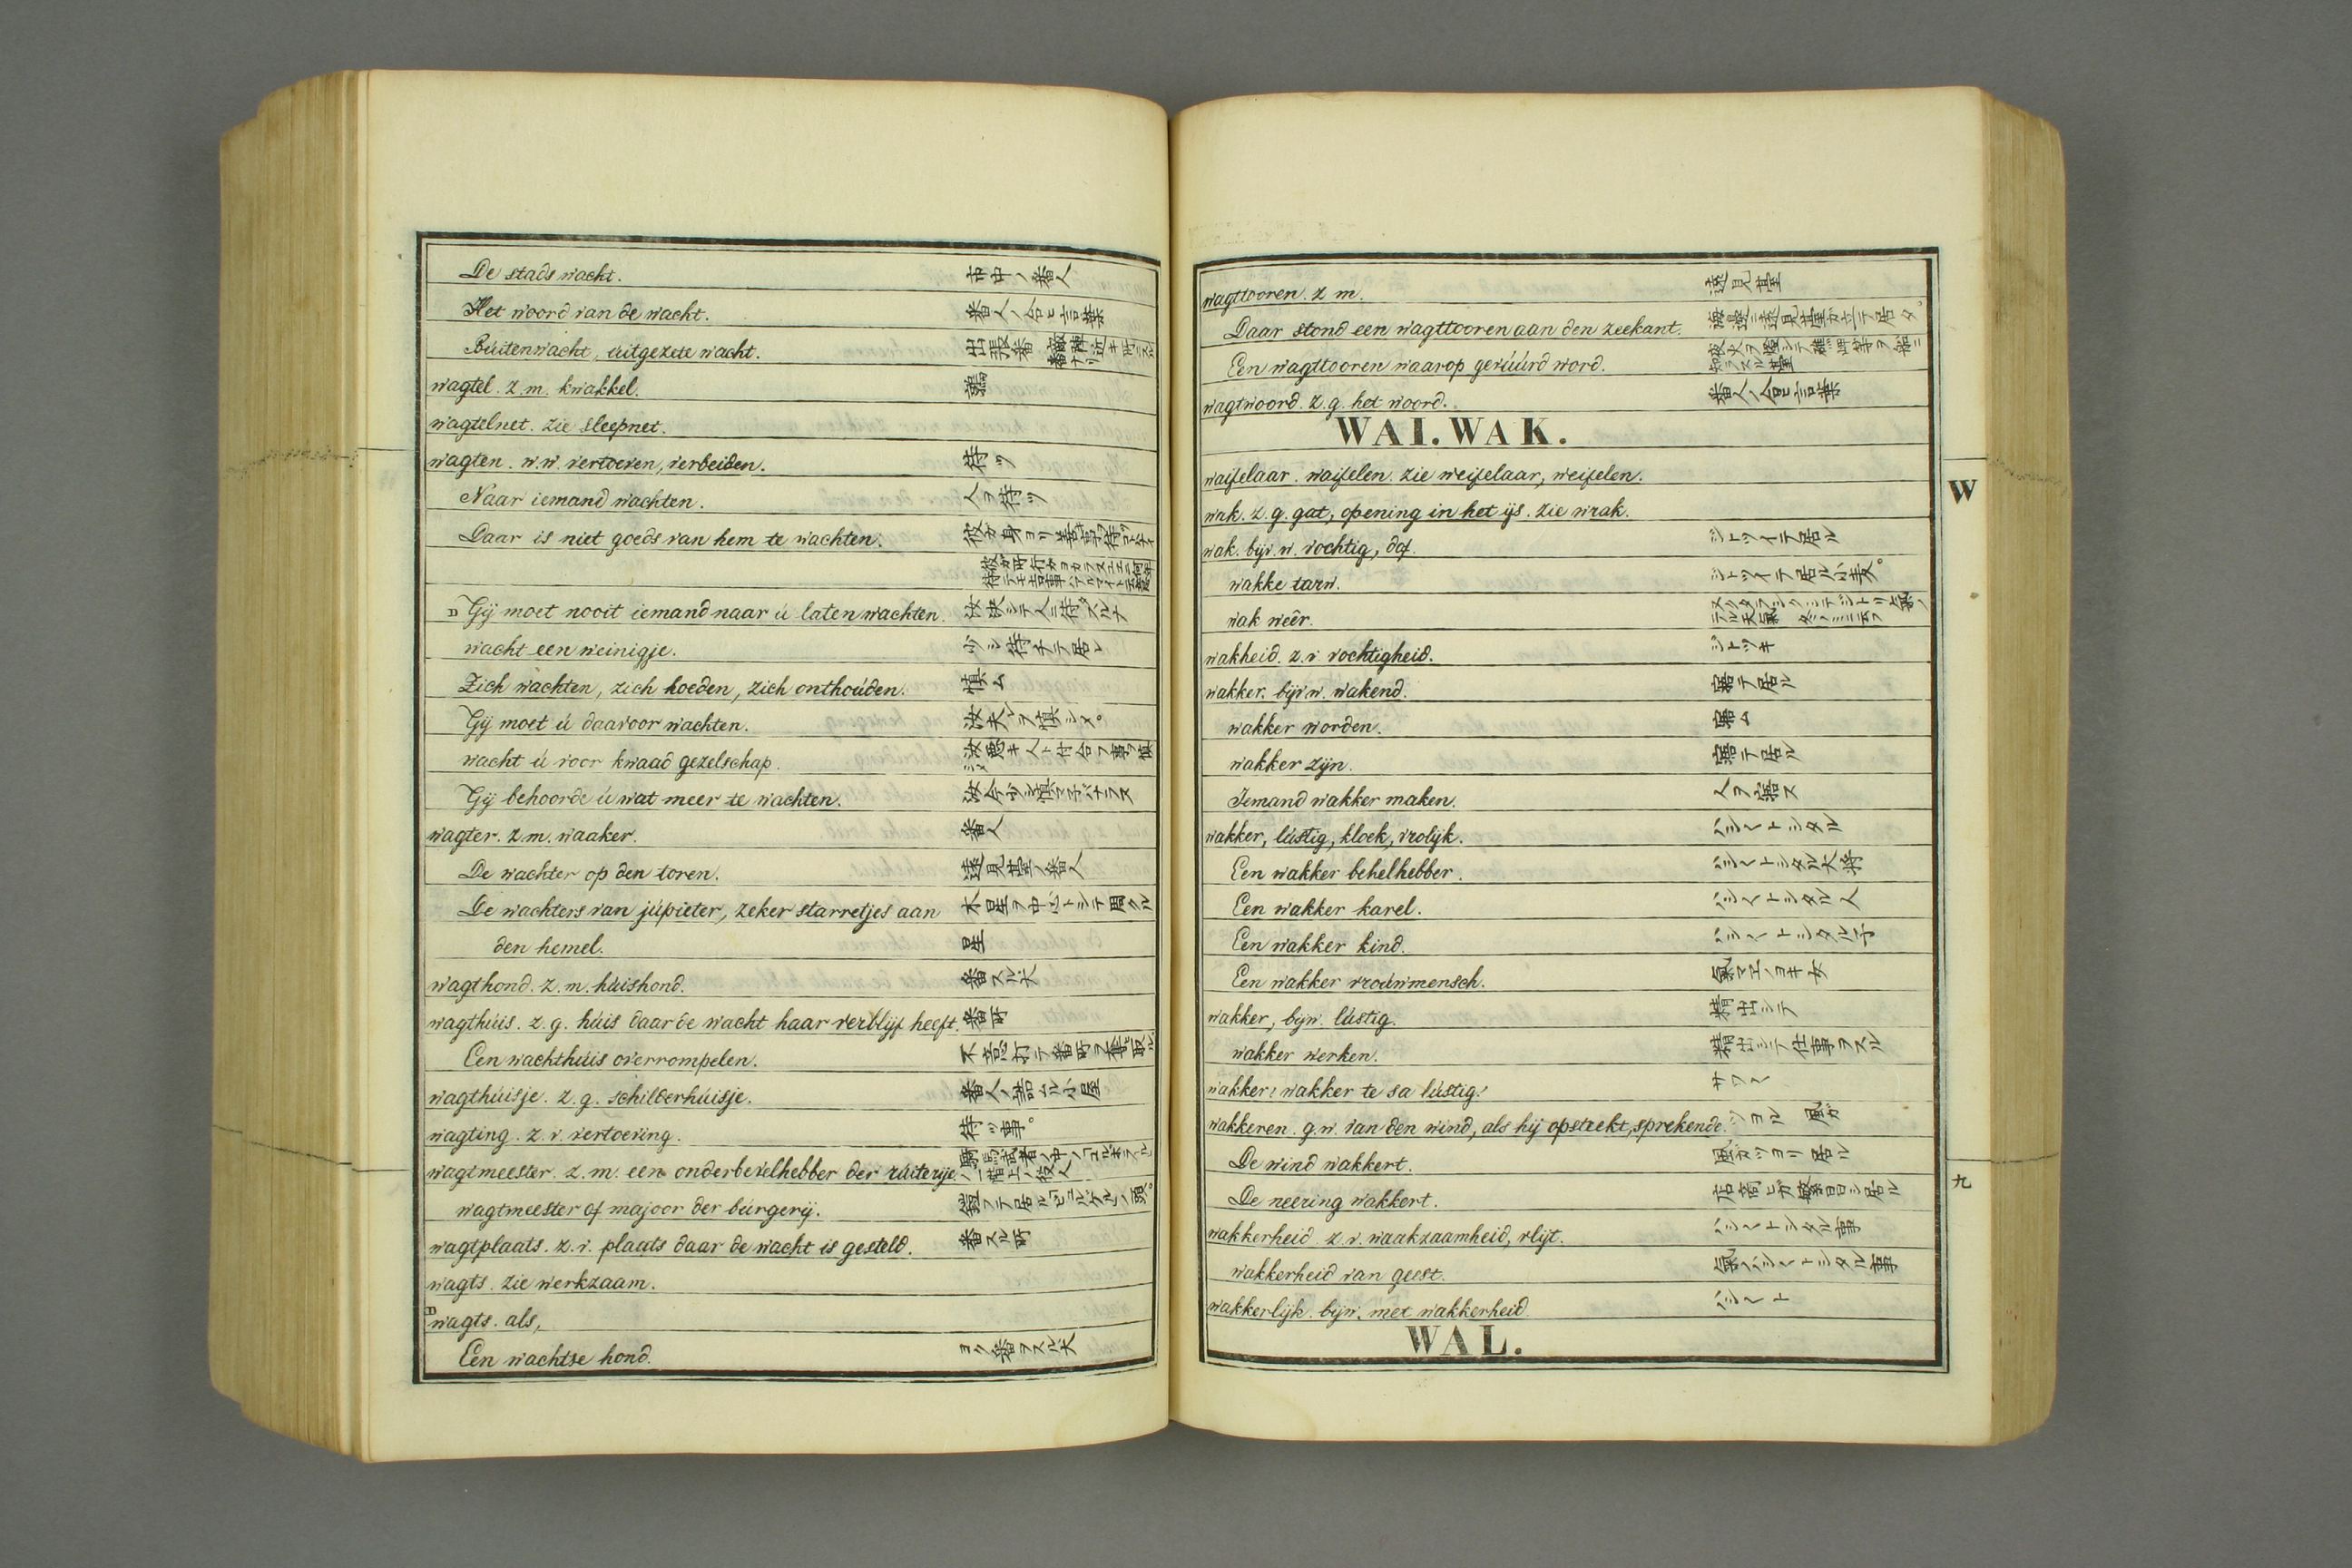 De stads wacht. 市中ノ番人
Het woord van de wacht. 番人ノ合ヒ言葉
Búitenwacht, úitgezete wacht. 出張番
wagtel. z.m. kwakkel. 鶉
wagtelnet. zie sleepnet.
wagten. w.w. vertoeven, verbeiden. 待ツ
Naar iemand wachten. 人ヲ待ツ
Daar is niet goeds van hem te wachten.
Gij moet nooit iemand naar ú laten wachten. 汝決シテ人ニ待タスルナ
wacht een weinigje. 少シ待チテ居レ
Zich wachten, zich hoeden, zich onthoúden. 慎ム
Gij moet ú daarvoor wachten. 汝夫レヲ慎シメ。
wacht ú voor kwaad gezelschap. 汝悪キ人ト付合フ事ヲ慎シメ
Gij behoorde ú wat meer te wachten. 汝今少シ慎マ子バナラヌ
wagter. z.m. waaker. 番人
De wachter op den toren. 遠見臺ノ番人
De wachters van júpieter, zeker starretjes aan 木星ヲ中心トシテ周クル
den hemel. 星
wagthond. z.m. húishond. 番スル犬
wagthúis. z.g. húis daar de wacht haar verblijf heeft. 番所
Een wachthúis overrompelen. 不意打テ番所ヲ奪取ル
wagthúisje. z.g. schilderhúisje. 番人ノ詰ル小屋
wagting. z.v. vertoeving. 待ツ事。
wagtmeester. z.m. een onderbevelhebber der rúiterije.
wagtmeester of majoor der búrgerij.
wagtplaats. z.v. plaats daar de wacht is gesteld. 番スル所
wagts. zie werkzaam.
wagts. als,
Een wachtse hond. ヨク番ヲスル犬
wagttooren. z m. 遠見臺
Daar stond een wagttooren aan den zeekant. 海邉ニ遠見臺カ立テ居タ。
Een wagttooren waarop gevúúrd word.
wagtwoord. z.g. het woord. 番人ノ合ヒ言葉
WAI. WAK.
waifelaar. waifelen. zie weifelaar, weifelen.
wak. z.g. gat, opening in het ijs. zie wrak.
wak. bijv.w. vochtig, dof. ジトツイテ居ル
wakke tarw. ジトツイテ居ル小麦。
wak weêr.
wakheid. z.v vochtigheid. ジトツキ
wakker. bijv w. wakend. 寤テ居ル
wakker worden. 寤ム
wakker zijn. 寤テ居ル
Iemand wakker maken. 人ヲ寤ス
wakker, lústig, kloek, vrolijk. ハシ〱トシタル
Een wakker behelhebber. ハシ〱トシタル大将
Een wakker karel. ハシ〱トシタル人
Een wakker kind. ハシ〱トシタル子
Een wakker vroúwmensch. 氣マエノヨキ女
wakker, bijw. lústig. 精出シテ
wakker werken. 精出シテ仕事ヲスル
wakker! wakker te sa lústig! サア〱
wakkeren. g.w. van den wind, als hij opsteekt, sprekende. ツヨル 風ガ
De wind wakkert. 風ガツヨリ居ル
De neering wakkert. 店商ヒガ繁昌シ居ル
wakkerheid. z.v. waakzaamheid, vlijt. ハシ〱トシタル事
wakkerheid van geest. 氣ノハシ〱トシタル事
wakkerlijk. bijw. met wakkerheid. ハシ〱ト
WAL.
W
九